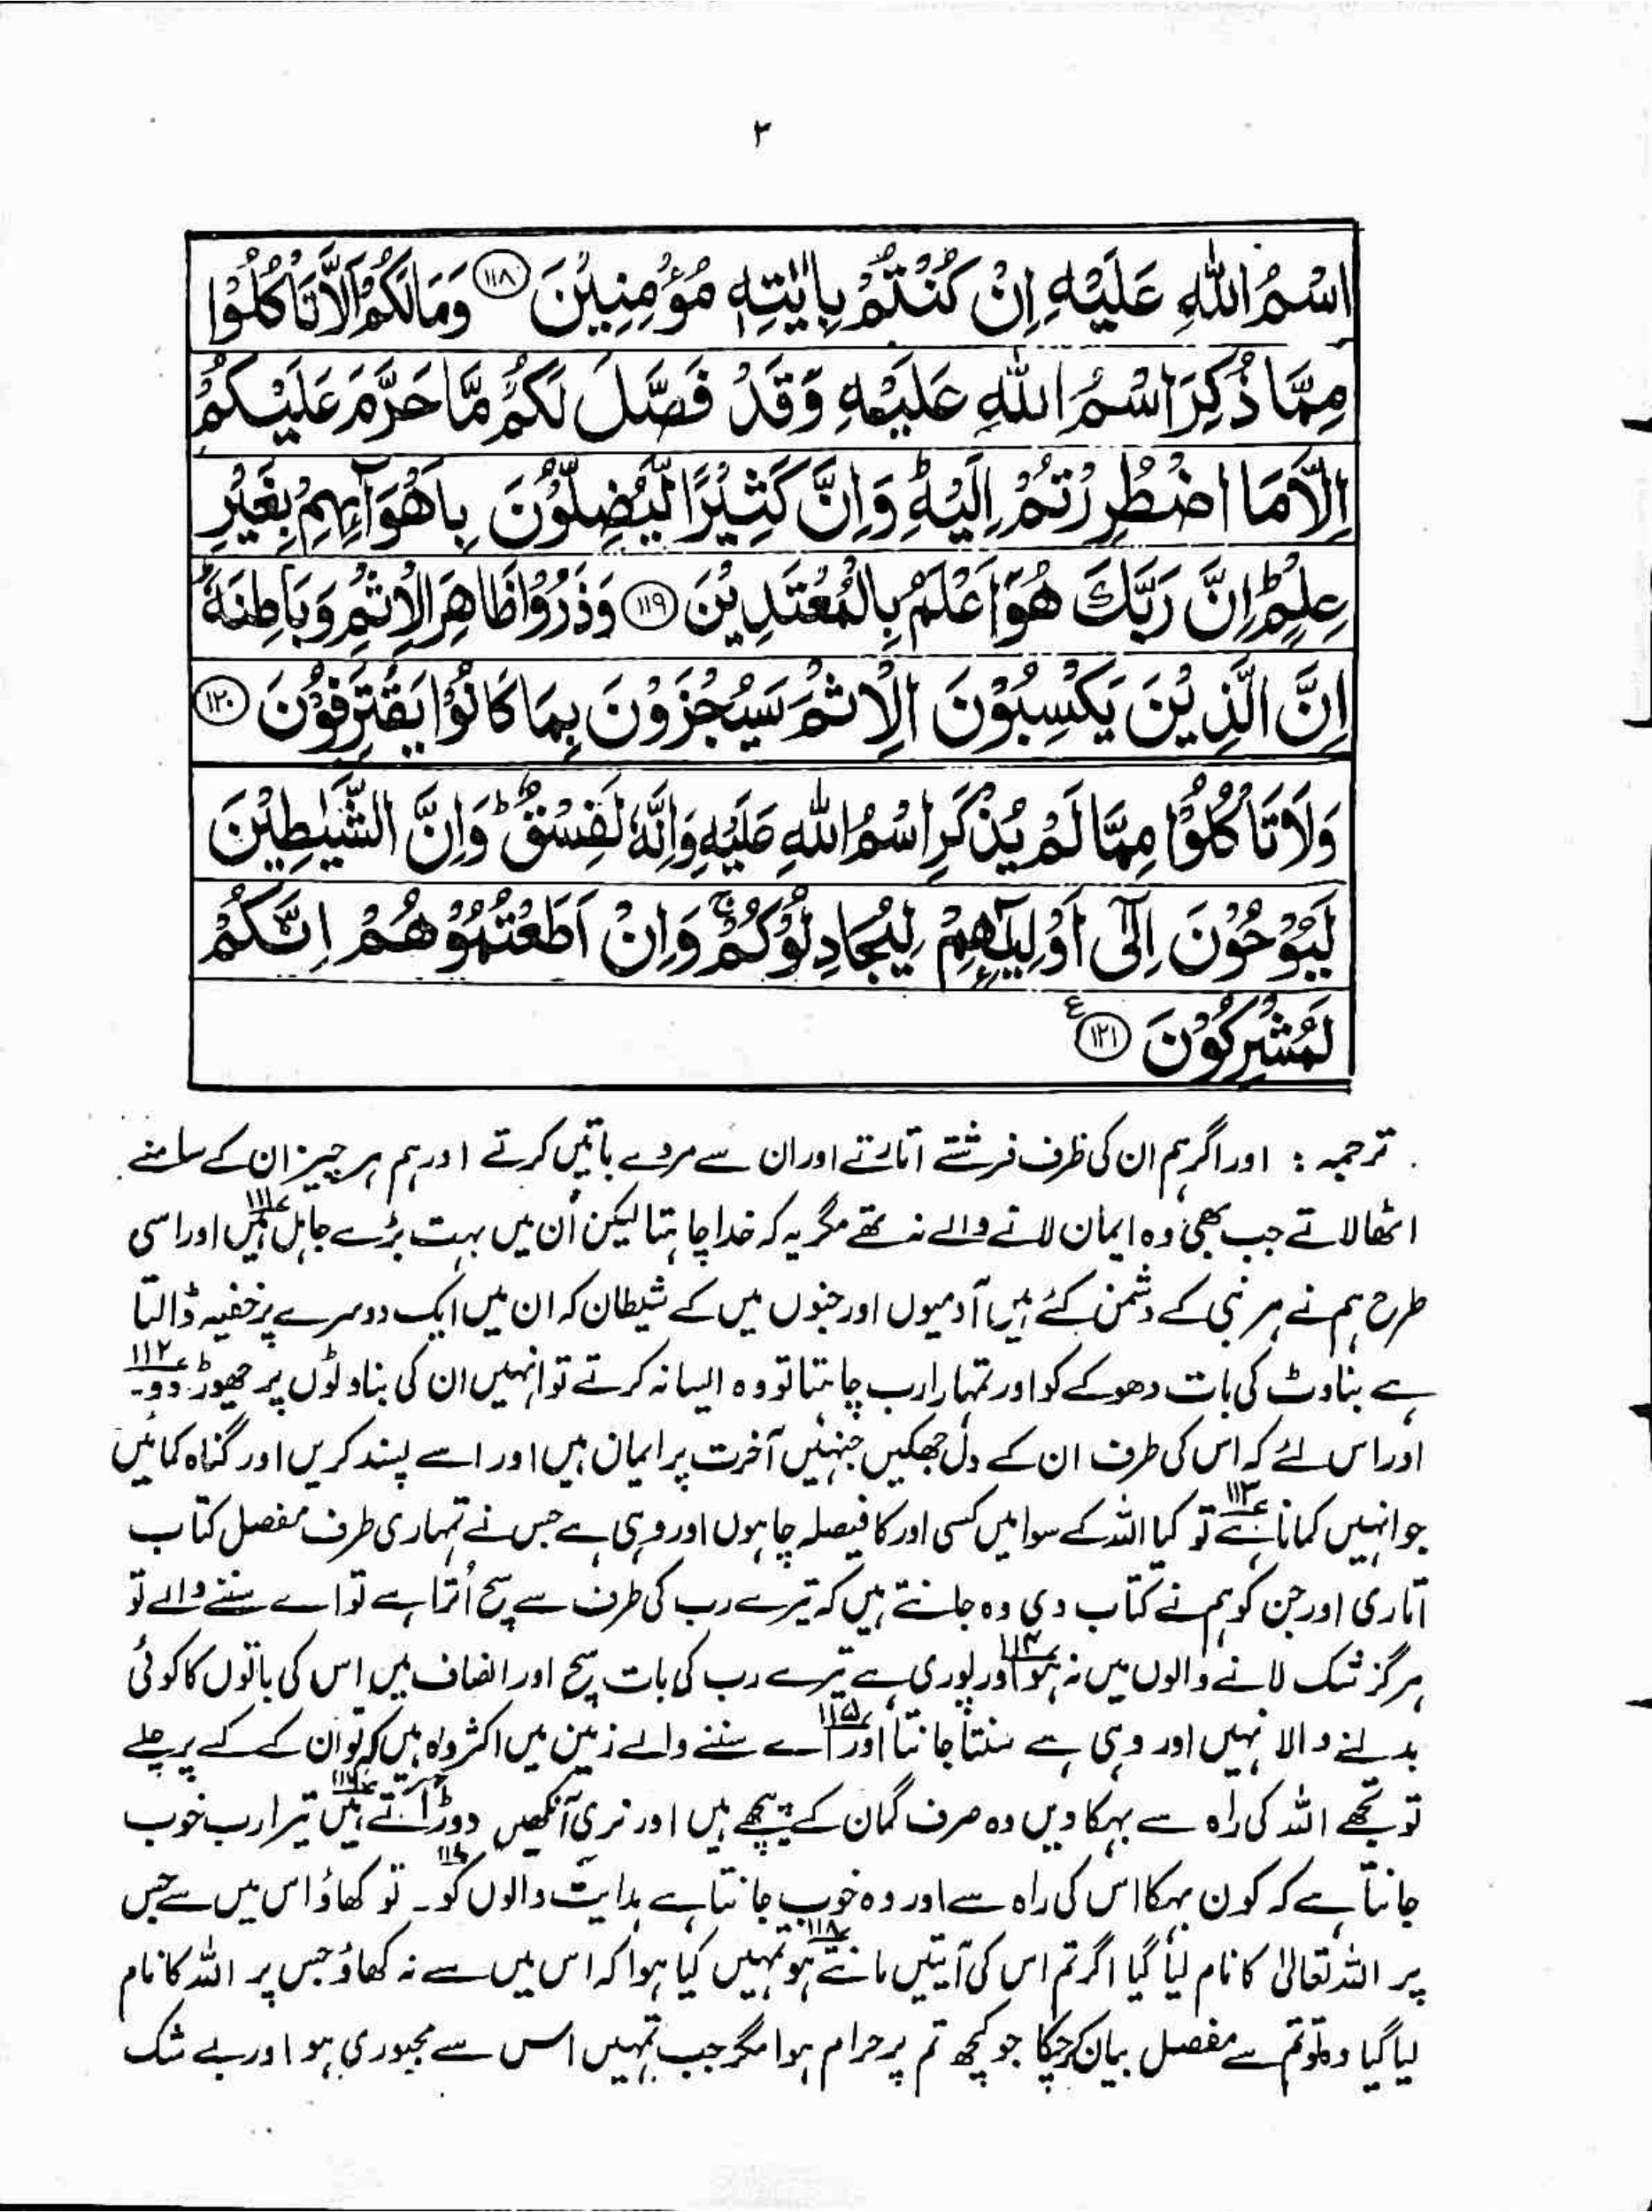 ۳
اسْمُ اللّٰهِ عَلَيْهِ اِنْ كُنْتُمْ بِاٰيٰتِهٖ مُؤْمِنِيْنَ ﴿۱۱۸﴾ وَمَا لَكُمْ اَلَّا تَاْكُلُوْا
مِمَّا ذُكِرَ اسْمُ اللّٰهِ عَلَيْهِ وَقَدْ فَصَّلَ لَكُمْ مَّا حَرَّمَ عَلَيْكُمْ
اِلَّا مَا اضْطُرِرْتُمْ اِلَيْهِ ؕ وَاِنَّ كَثِيْرًا لَّيُضِلُّوْنَ بِاَهْوَآئِهِمْ بِغَيْرِ
عِلْمٍ ؕ اِنَّ رَبَّكَ هُوَ اَعْلَمُ بِالْمُعْتَدِيْنَ ﴿۱۱۹﴾ وَذَرُوْا ظَاهِرَ الْاِثْمِ وَبَاطِنَهٗ ؕ
اِنَّ الَّذِيْنَ يَكْسِبُوْنَ الْاِثْمَ سَيُجْزَوْنَ بِمَا كَانُوْا يَقْتَرِفُوْنَ ﴿۱۲۰﴾
وَلَا تَاْكُلُوْا مِمَّا لَمْ يُذْكَرِ اسْمُ اللّٰهِ عَلَيْهِ وَاِنَّهٗ لَفِسْقٌ ؕ وَاِنَّ الشَّيٰطِيْنَ
لَيُوْحُوْنَ اِلٰٓى اَوْلِيٰٓـِٕهِمْ لِيُجَادِلُوْكُمْ ۚ وَاِنْ اَطَعْتُمُوْهُمْ اِنَّكُمْ
لَمُشْرِكُوْنَ ﴿۱۲۱﴾ ع
ترجمہ : اور اگر ہم ان کی طرف فرشتے اتارتے اور ان سے مردے باتیں کرتے اور ہم ہر چیز ان کے سامنے
اٹھا لاتے جب بھی وہ ایمان لانے والے نہ تھے مگر یہ کہ خدا چاہتا لیکن اُن میں بہت بڑے جاہل ہیں ۱۱۱ اور اسی
طرح ہم نے ہر نبی کے دشمن کئے ہیں آدمیوں اور جنوں میں کے شیطان کہ ان میں ایک دوسرے پر خفیہ ڈالتا
ہے بناوٹ کی بات دھوکے کو اور تمہارا رب چاہتا تو وہ ایسا نہ کرتے تو انہیں ان کی بناوٹوں پر چھوڑ دو۔ ۱۱۲
اور اس لئے کہ اس کی طرف ان کے دل جھکیں جنہیں آخرت پر ایمان ہیں اور اسے پسند کریں اور گناہ کمائیں
جو انہیں کمانا ہے ۱۱۳ تو کیا اللہ کے سوا میں کسی اور کا فیصلہ چاہوں اور وہی ہے جس نے تمہاری طرف مفصل کتاب
اتاری اور جن کو ہم نے کتاب دی وہ جانتے ہیں کہ تیرے رب کی طرف سے سچ اُترا ہے تو اے سننے والے تو
ہرگز شک لانے والوں میں نہ ہو ۱۱۴ اور پوری ہے تیرے رب کی بات سچ اور انصاف میں اس کی باتوں کا کوئی
بدلنے والا نہیں اور وہی ہے سنتا جانتا ۱۱۵ اور اے سننے والے زمین میں اکثر وہ ہیں کہ تو ان کے کہے پر چلے
تو تجھے اللہ کی راہ سے بہکا دیں وہ صرف گمان کے پیچھے ہیں اور نری آنکھیں دوڑاتے ہیں ۱۱۶ تیرا رب خوب
جانتا ہے کہ کون بہکا اس کی راہ سے اور وہ خوب جانتا ہے ہدایت والوں کو ۱۱۷۔ تو کھاؤ اس میں سے جس
پر اللہ تعالیٰ کا نام لیا گیا اگر تم اس کی آیتیں مانتے ہو ۱۱۸ تمہیں کیا ہوا کہ اس میں سے نہ کھاؤ جس پر اللہ کا نام
لیا گیا وہ تو تم سے مفصل بیان کر چکا جو کچھ تم پر حرام ہوا مگر جب تمہیں اس سے مجبوری ہو اور بے شک